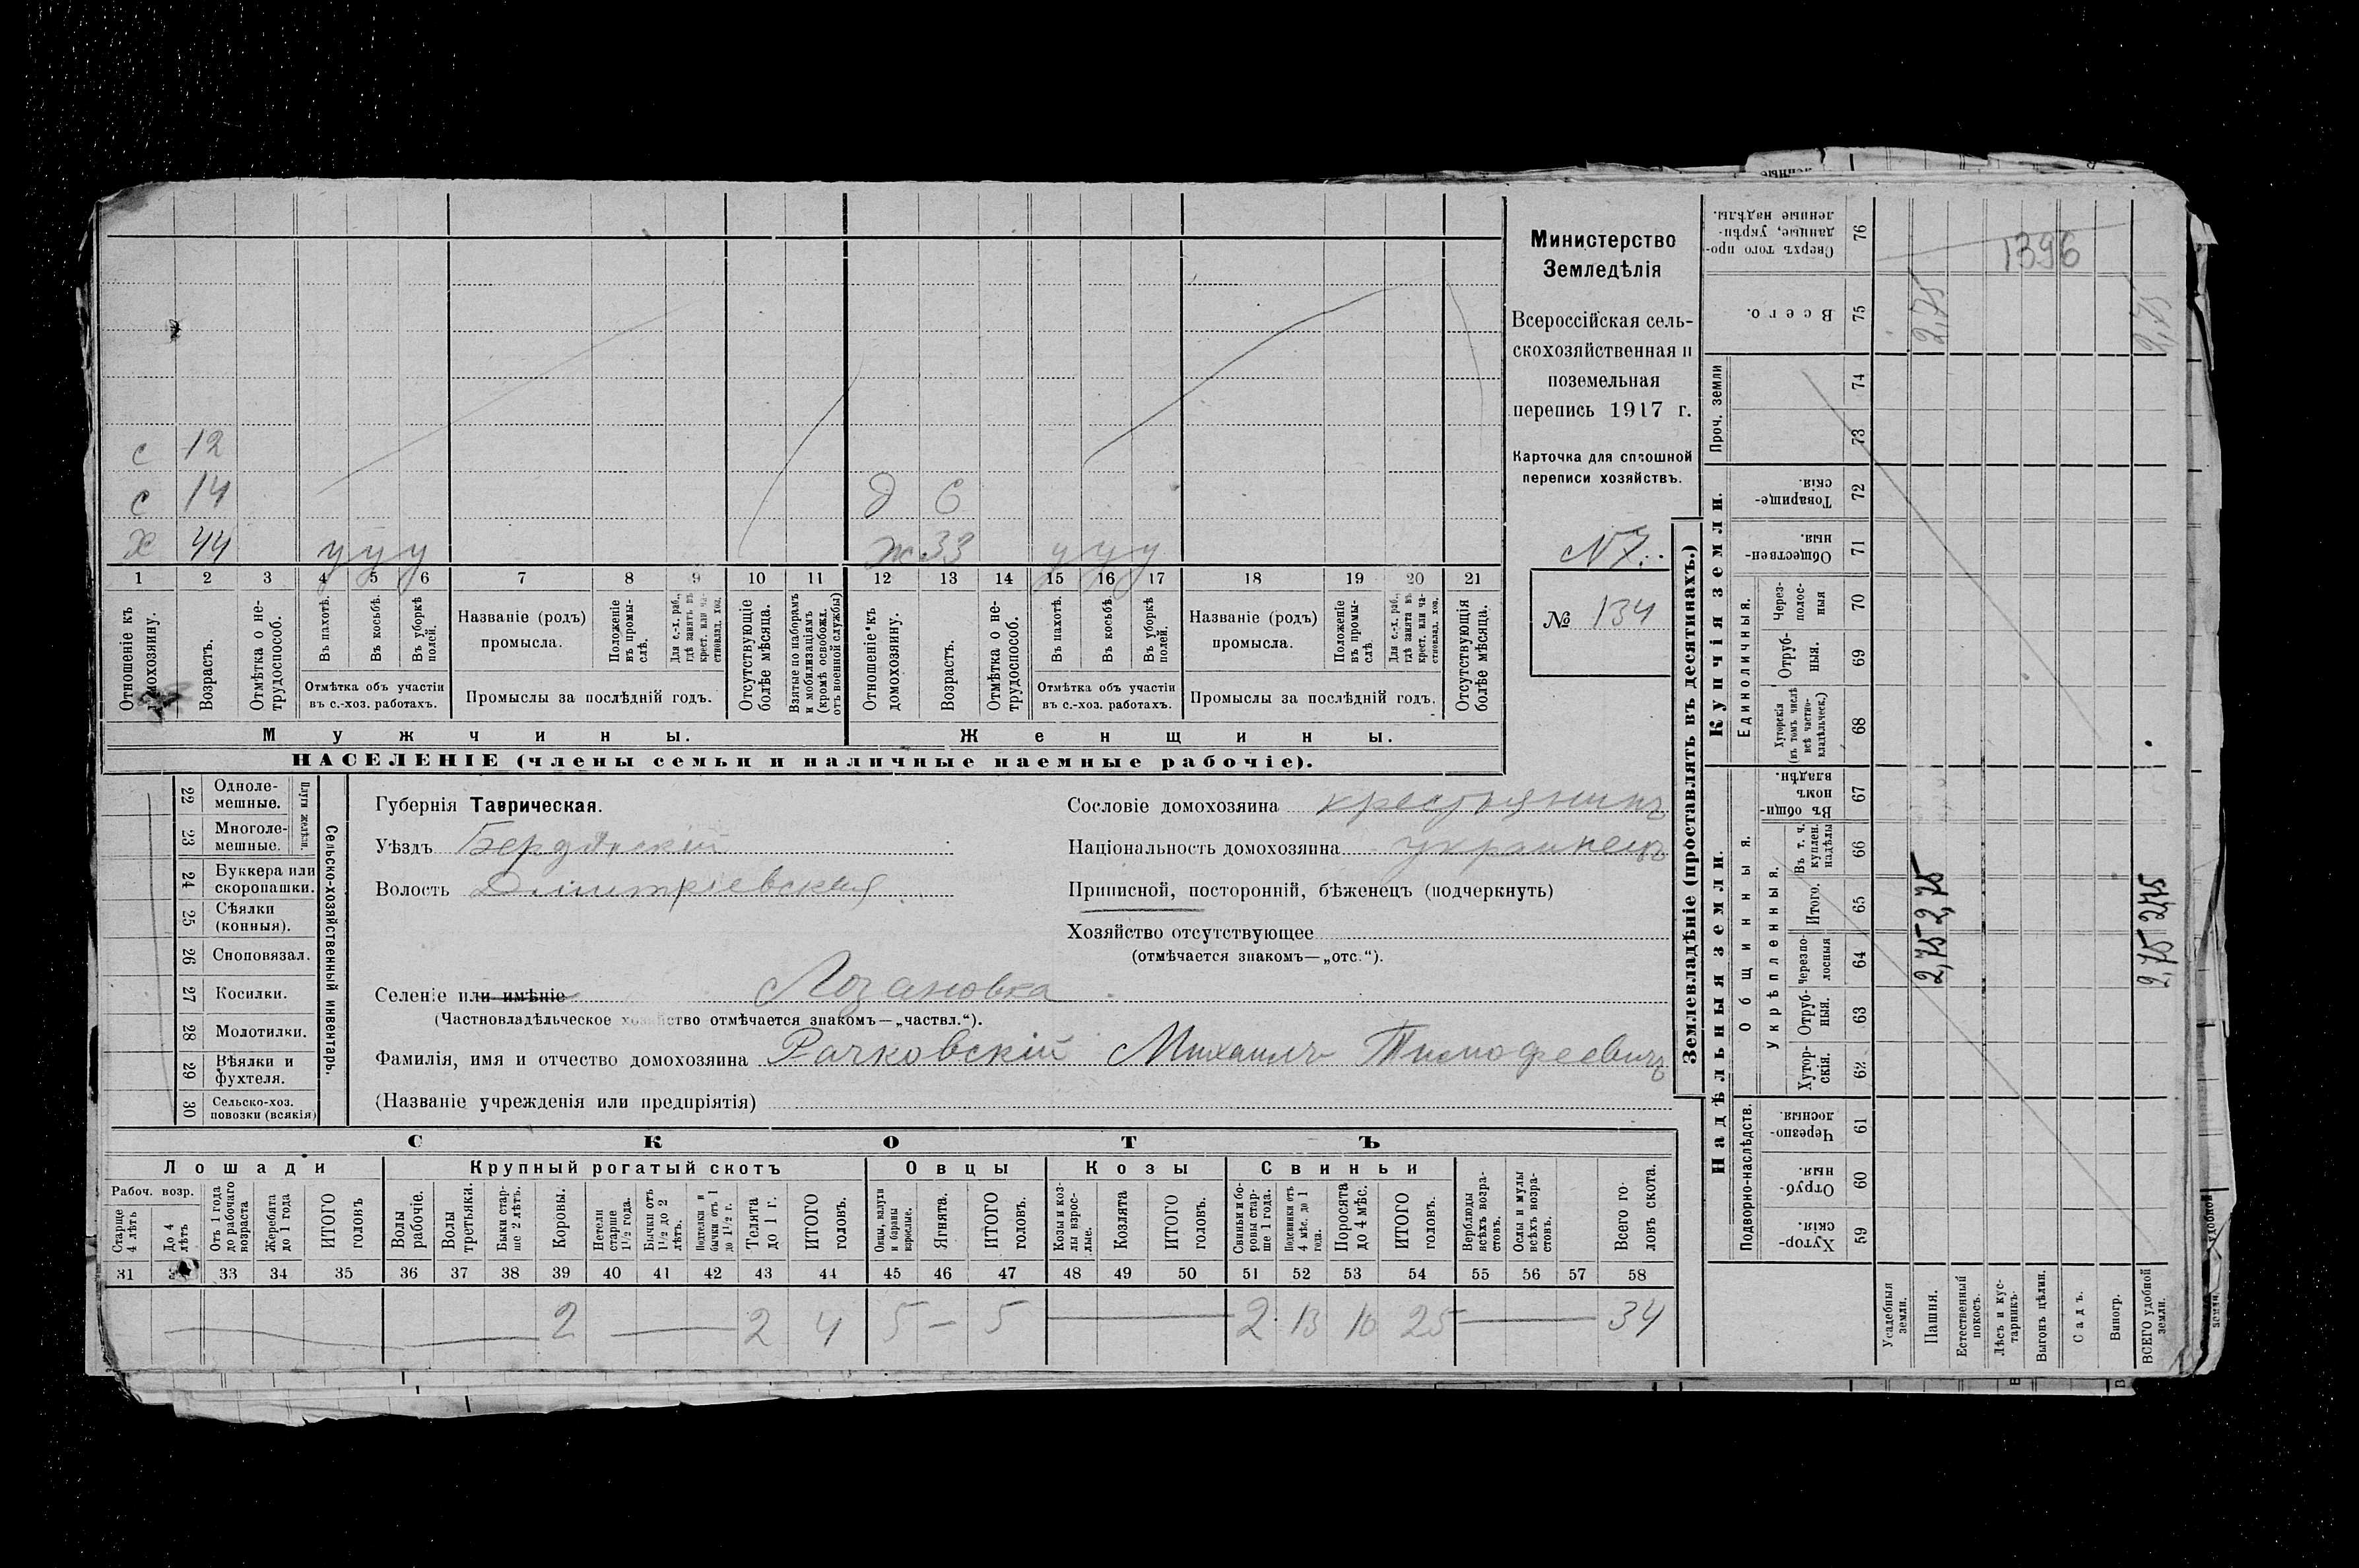 Министерство
Земледѣлія
Всероссійская сель-
скохозяйственная и
поземельная
перепись 1917 г.
Карточка для сплошной
переписи хозяйствъ.
N 7.
№ 134
с 12
с 14 д 6
х 44 у у у ж 33 у у у
1 2 3 4 5 6 7 8 9 10 11 12 13 14 15 16 17 18 19 20 21
Отношеніе къ домохозяину.
Возрастъ.
Отмѣтка о не-трудоспособ.
Въ пахотѣ.
Въ косьбѣ.
Въ уборкѣ полей.
Отмѣтка объ участіи
въ с.-хоз. работахъ.
Названіе (родъ)
промысла.
Положеніе въ промы-слѣ.
Для с.-х. раб., гдѣ занятъ въ крест. или ча-стновлад. хоз.
Промыслы за послѣдній годъ.
Отсутствующіе болѣе мѣсяца.
Взятые по наборамъ и мобилизаціямъ (кромѣ освобожд. отъ военной службы)
Отношеніе къ домохозяину.
Возрастъ.
Отмѣтка о не-трудоспособ.
Въ пахотѣ.
Въ косьбѣ.
Въ уборкѣ полей.
Отмѣтка объ участіи
въ с.-хоз. работахъ.
Названіе (родъ)
промысла.
Положеніе въ промы-слѣ
Для с.-х. раб., гдѣ занята въ крест. или ча-стновлад. хоз.
Промыслы за послѣдній годъ.
Отсутствующія болѣе мѣсяца.
Мужчины. Женщины.
НАСЕЛЕНІЕ (члены семьи и наличные наемные рабочіе).
22 Одноле-мешные.
23 Многоле-мешные.
Плуги желѣзн.
24 Буккера или скоропашки.
25 Сѣялки (конныя).
26 Сноповязал.
27 Косилки.
28 Молотилки.
29 Вѣялки и фухтеля.
30 Сельско-хоз. повозки (всякія)
Сельско-хозяйственный инвентарь.
Губернія Таврическая.
Уѣздъ Бердянскій
Волость Дмитріевская
Сословіе домохозяина крестьянинъ
Національность домохозяина украинецъ
Приписной, посторонній, бѣженецъ (подчеркнуть)
Хозяйство отсутствующее
(отмѣчается знакомъ—„отс.“).
Селеніе или имѣніе Лозановка
(Частновладѣльческое хозяйство отмѣчается знакомъ—„частвл.“).
Фамилія, имя и отчество домохозяина Рачковскій Михаилъ Тимофеевичъ
(Названіе учрежденія или предпріятія)
СКОТЪ
Лошади Крупный рогатый скотъ Овцы Козы Свиньи
Рабоч. возр.
Старше 4 лѣтъ
До 4 лѣтъ
Отъ 1 года до рабочаго возраста
Жеребята до 1 года
ИТОГО головъ
Волы рабочіе.
Волы третьяки.
Быки стар-ше 2 лѣтъ.
Коровы.
Нетели старше 1½ года.
Бычки отъ 1½ до 2 лѣтъ.
Подтелки и бычки отъ 1 до 1½ г.
Телята до 1 г.
ИТОГО головъ.
Овцы, валухи и бараны взрослые.
Ягнята.
ИТОГО головъ.
Козы и коз-лы взрос-лые.
Козлята
ИТОГО головъ.
Свиньи и бо-ровы стар-ше 1 года.
Подсвинки отъ 4 мѣс. до 1 года.
Поросята до 4 мѣс.
ИТОГО головъ.
Верблюды всѣхъ возра-стовъ.
Ослы и мулы всѣхъ возра-стовъ.
Всего го-ловъ скота.
31 33 34 35 36 37 38 39 40 41 42 43 44 45 46 47 48 49 50 51 52 53 54 55 56 57 58
2 2 4 5 — 5 2 13 10 25 34
Землевладѣніе (проставлять въ десятинахъ.)
Надѣльныя земли. Купчія земли. Проч. земли
Подворно-наслѣдств.
Общинныя.
Укрѣпленныя.
Единоличныя.
Хутор-скія. 59
Отруб-ныя. 60
Черезпо-лосныя 61
Хутор-скія. 62
Отруб-ныя. 63
Черезпо-лосныя 64
Итого. 65
Въ т. ч. куплен. надѣлы 66
Въ общин-номъ владѣн. 67
Хуторскія (въ томъ числѣ всѣ частно-владѣльческ.) 68
Отруб-ныя. 69
Через-полос-ныя 70
Обществен-ныя. 71
Товарище-скія. 72
73
74
Всего. 75
Сверхъ того про-данные, укрѣп-ленные надѣлы. 76
Усадебныя земли.
Пашня. 2,75 2,75 2,75
Естественный покосъ.
Лѣсъ и кус-тарникъ.
Выгонъ цѣлин.
Садъ.
Виногр.
ВСЕГО удобной земли. 2,75 2,75 2,75
1396